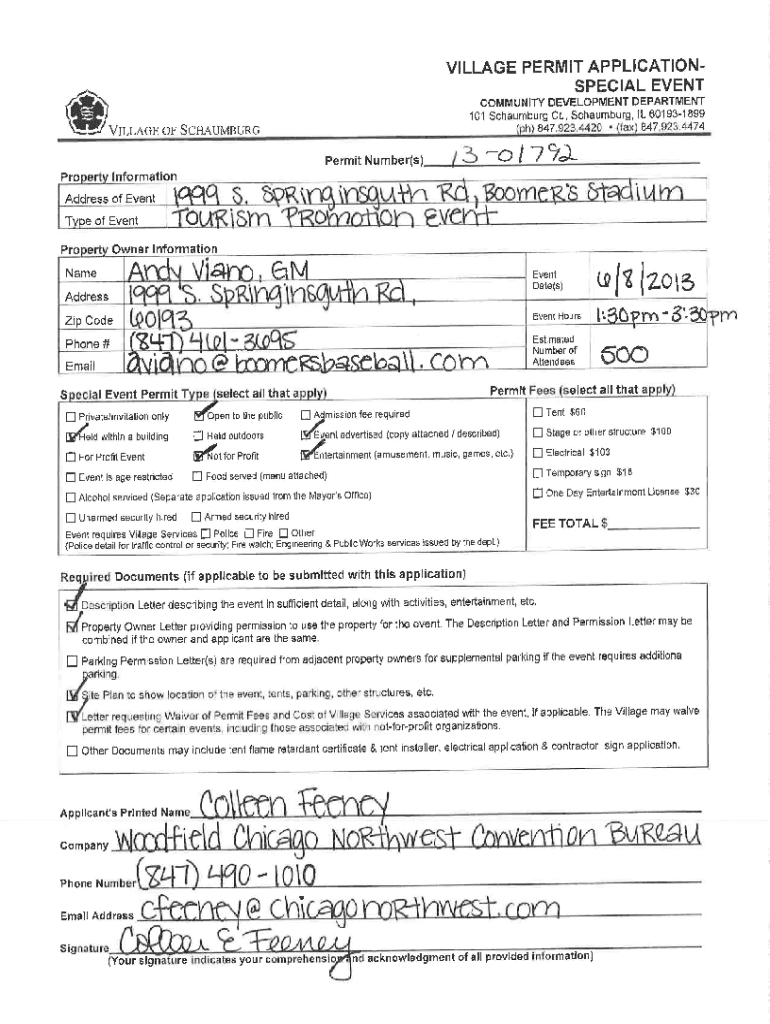 VILLAGE PERMIT APPLICATION-
SPECIAL EVENT
COMMUNITY DEVELOPMENT DEPARTMENT
101 Schaumburg Ct., Schaumburg, IL 60193-1899
(ph) 847.923.4420 • (fax) 847.923.4474
VILLAGE OF SCHAUMBURG
Permit Number(s) 13-01792
Property Information
Address of Event 1999 S. Springinsguth Rd, Boomer's Stadium
Type of Event Tourism Promotion Event
Property Owner Information
Name Andy Viano, GM
Address 1999 S. Springinsguth Rd,
Zip Code 60193
Phone # (847) 461-3695
Email aviano@boomersbaseball.com
Event Date(s) 6/8/2013
Event Hours 1:30pm-3:30pm
Estimated Number of Attendees 500
Special Event Permit Type (select all that apply)
Private/invitation only Open to the public Admission fee required
Held within a building Held outdoors Event advertised (copy attached / described)
For Profit Event Not for Profit Entertainment (amusement, music, games, etc.)
Event is age restricted Food served (menu attached)
Alcohol serviced (Separate application issued from the Mayor's Office)
Unarmed security hired Armed security hired
Event requires Village Services Police Fire Other
(Police detail for traffic control or security; Fire watch; Engineering & Public Works services issued by the dept.)
Permit Fees (select all that apply)
Tent $60
Stage or other structure $100
Electrical $103
Temporary sign $15
One Day Entertainment License $30
FEE TOTAL $
Required Documents (if applicable to be submitted with this application)
Description Letter describing the event in sufficient detail, along with activities, entertainment, etc.
Property Owner Letter providing permission to use the property for the event. The Description Letter and Permission Letter may be
combined if the owner and applicant are the same.
Parking Permission Letter(s) are required from adjacent property owners for supplemental parking if the event requires additiona
parking.
Site Plan to show location of the event, tents, parking, other structures, etc.
Letter requesting Waiver of Permit Fees and Cost of Village Services associated with the event, if applicable. The Village may waive
permit fees for certain events, including those associated with not-for-profit organizations.
Other Documents may include tent flame retardant certificate & tent installer, electrical application & contractor sign application.
Applicant's Printed Name Colleen Feeney
Company Woodfield Chicago Northwest Convention Bureau
Phone Number (847) 490-1010
Email Address cfeeney@chicagonorthwest.com
Signature Colleen E Feeney
(Your signature indicates your comprehension and acknowledgment of all provided information)